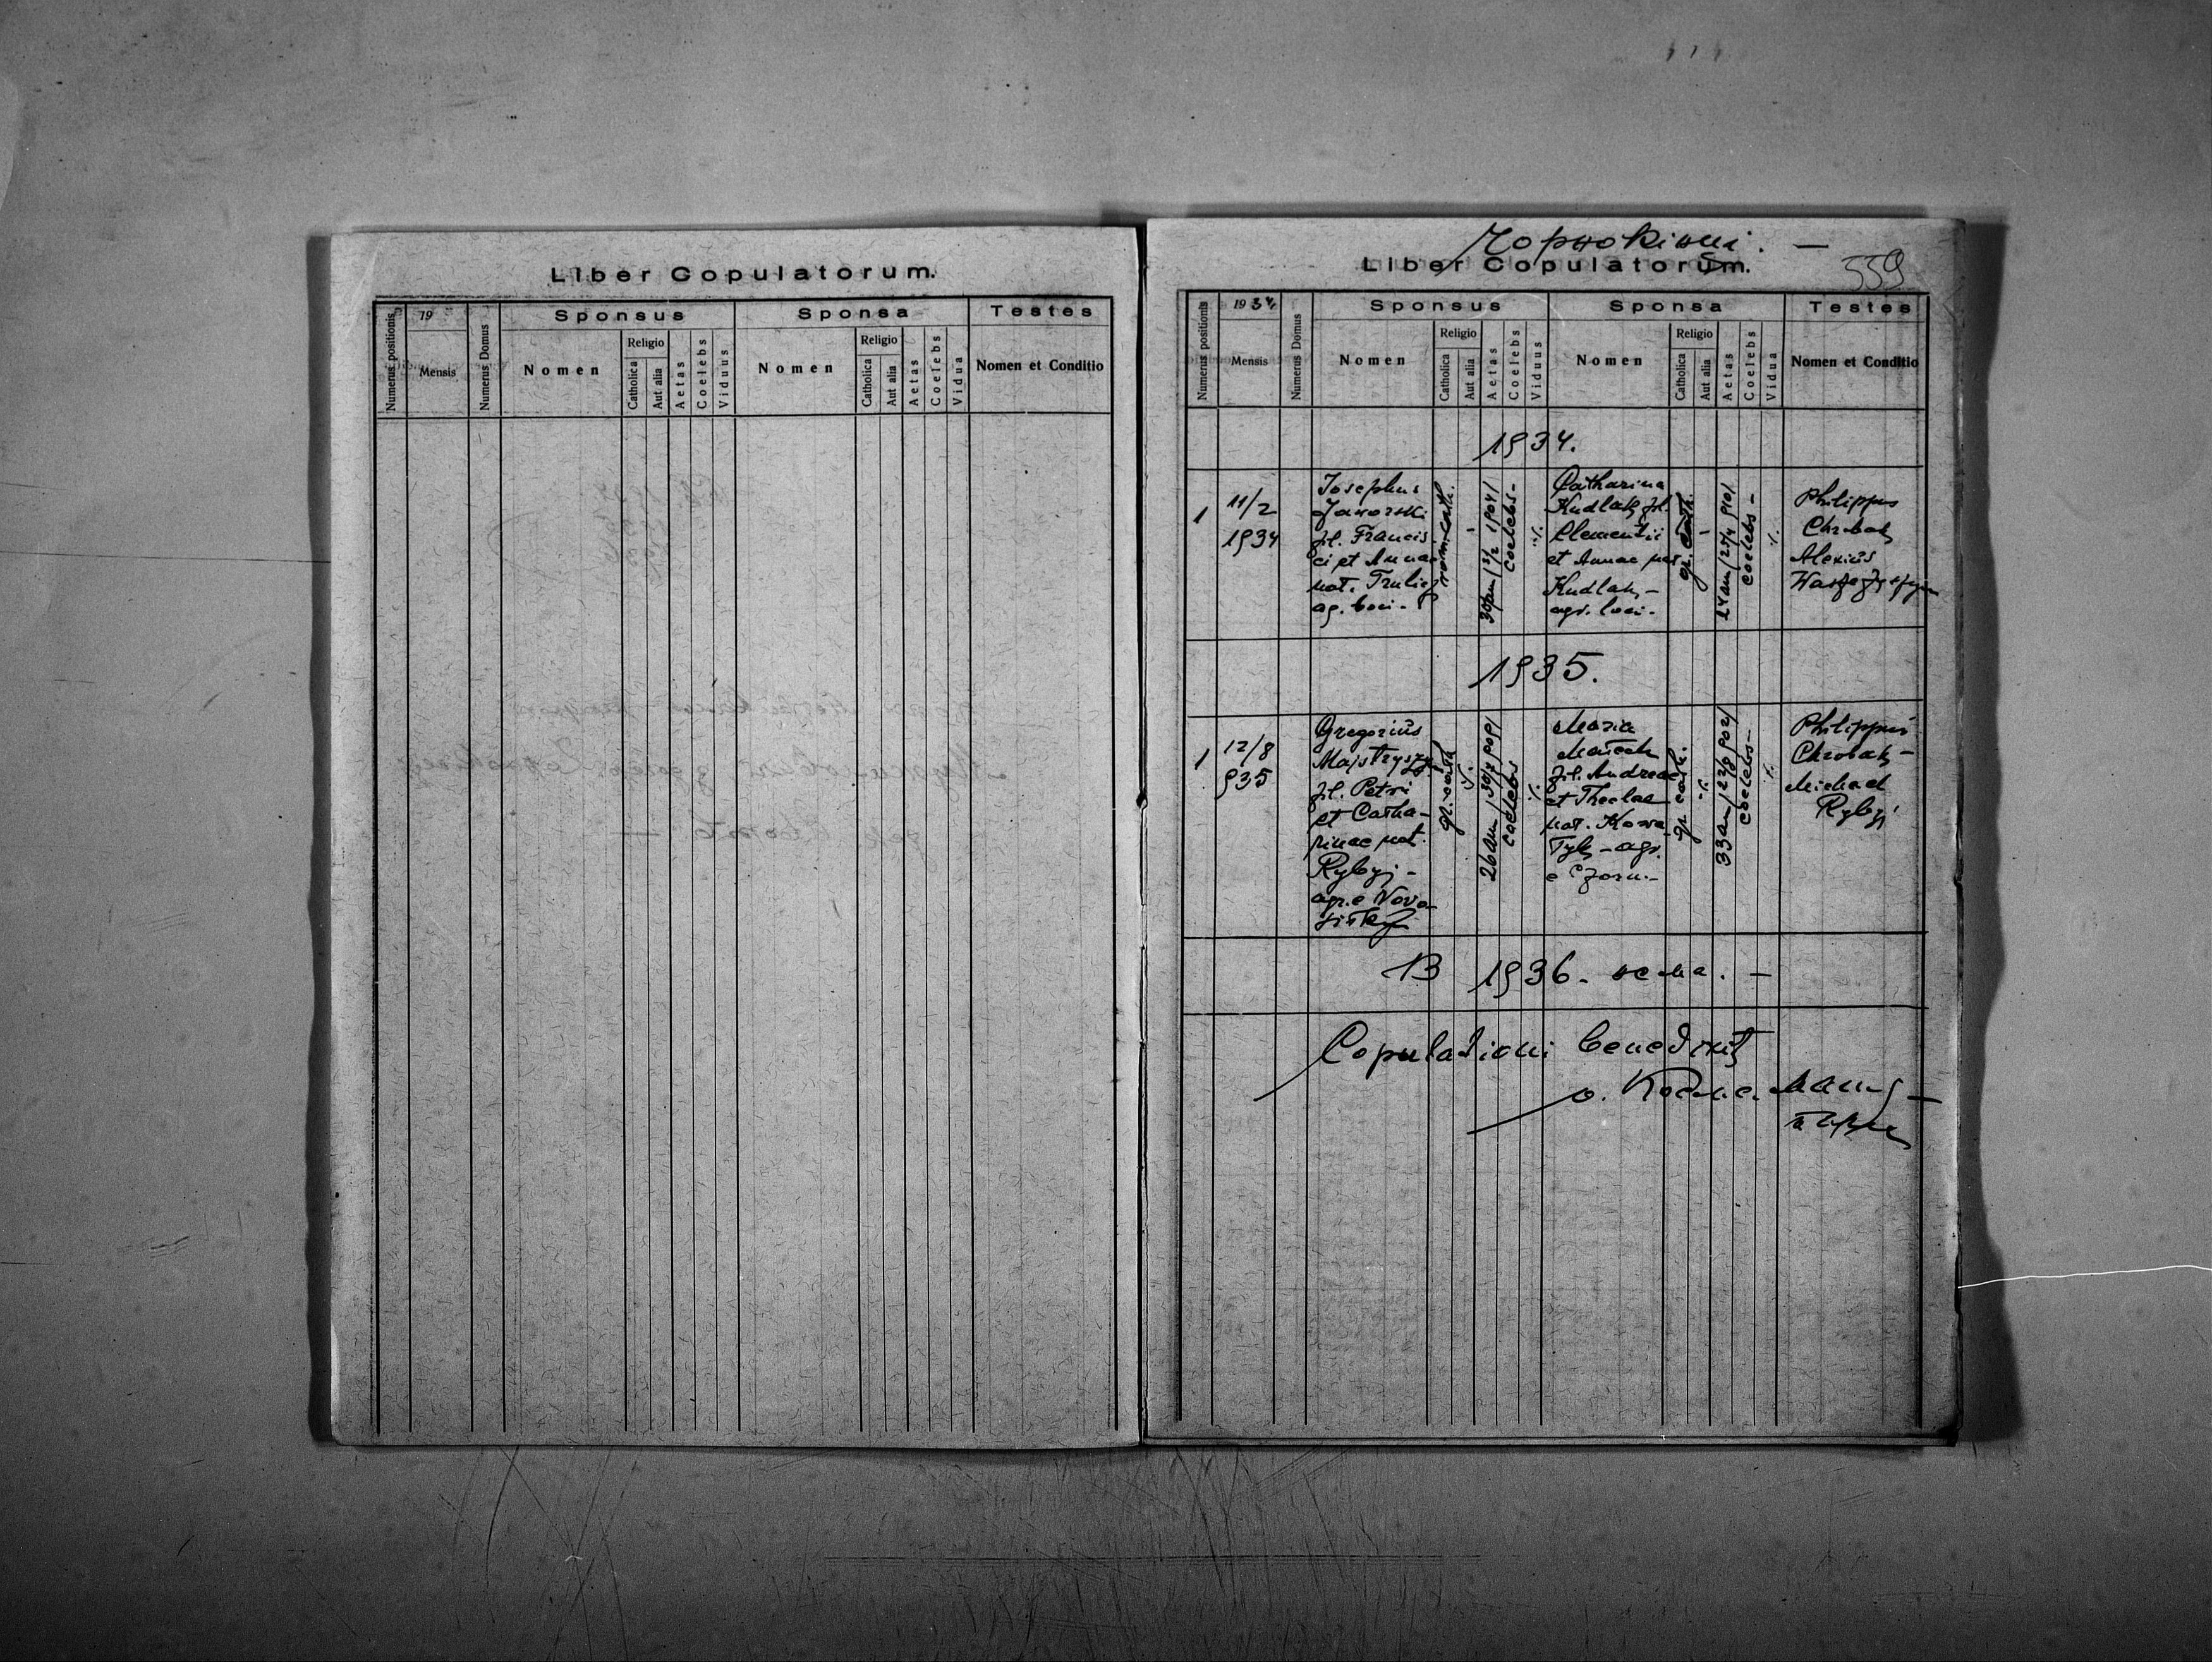 Liber Copulatorum.
Numerus positionis
19
Mensis
Numerus Domus
Sponsus
Nomen
Religio
Catholica
Aut alia
Aetas
Coelebs
Viduus
Sponsa
Nomen
Religio
Catholica
Aut alia
Aetas
Coelebs
Vidua
Testes
Nomen et Conditio
Liber Copulatorum.
559
Numerus positionis
1934
Mensis
Numerus Domus
Sponsus
Nomen
Religio
Catholica
Aut alia
Aetas
Coelebs
Viduus
Sponsa
Nomen
Religio
Catholica
Aut alia
Aetas
Coelebs
Vidua
Testes
Nomen et Conditio
1934.
1
11/2
1934
Josephus
Jaworski
fil. Francis
ci et Annae
nat.
ag. loci -
rom. cath.
coelebs -
Catharina
Kudlak fil.
Clementii
et Annae
Kudlak -
agr. loci -
gr. cath.
coelebs -
Philippus
Chrobak
Alexius
1935.
1
12/8
935
Gregorius
Majstryszyn
fil. Petri
et Catha-
rinae nat.
Rybyj -
agr. e Novo-
gr. cath
coelebs
Maria
fil. Andreae
et Theclae
nat. Kowa
Tyk - agr.
gr. cath.
coelebs -
Philippus
Chrobak -
Michael
Rybyj
В 1936. нема. -
Copulationi benedixit